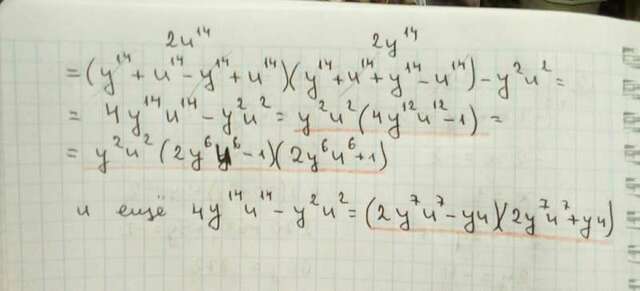 2u¹⁴ 2y¹⁴
= (y¹⁴ + u¹⁴ - y¹⁴ + u¹⁴)(y¹⁴ + u¹⁴ + y¹⁴ - u¹⁴) - y²u² =
= 4y¹⁴u¹⁴ - y²u² = y²u²(4y¹²u¹² - 1) =
= y²u²(2y⁶u⁶ - 1)(2y⁶u⁶ + 1)
и ещё 4y¹⁴u¹⁴ - y²u² = (2y⁷u⁷ - yu)(2y⁷u⁷ + yu)